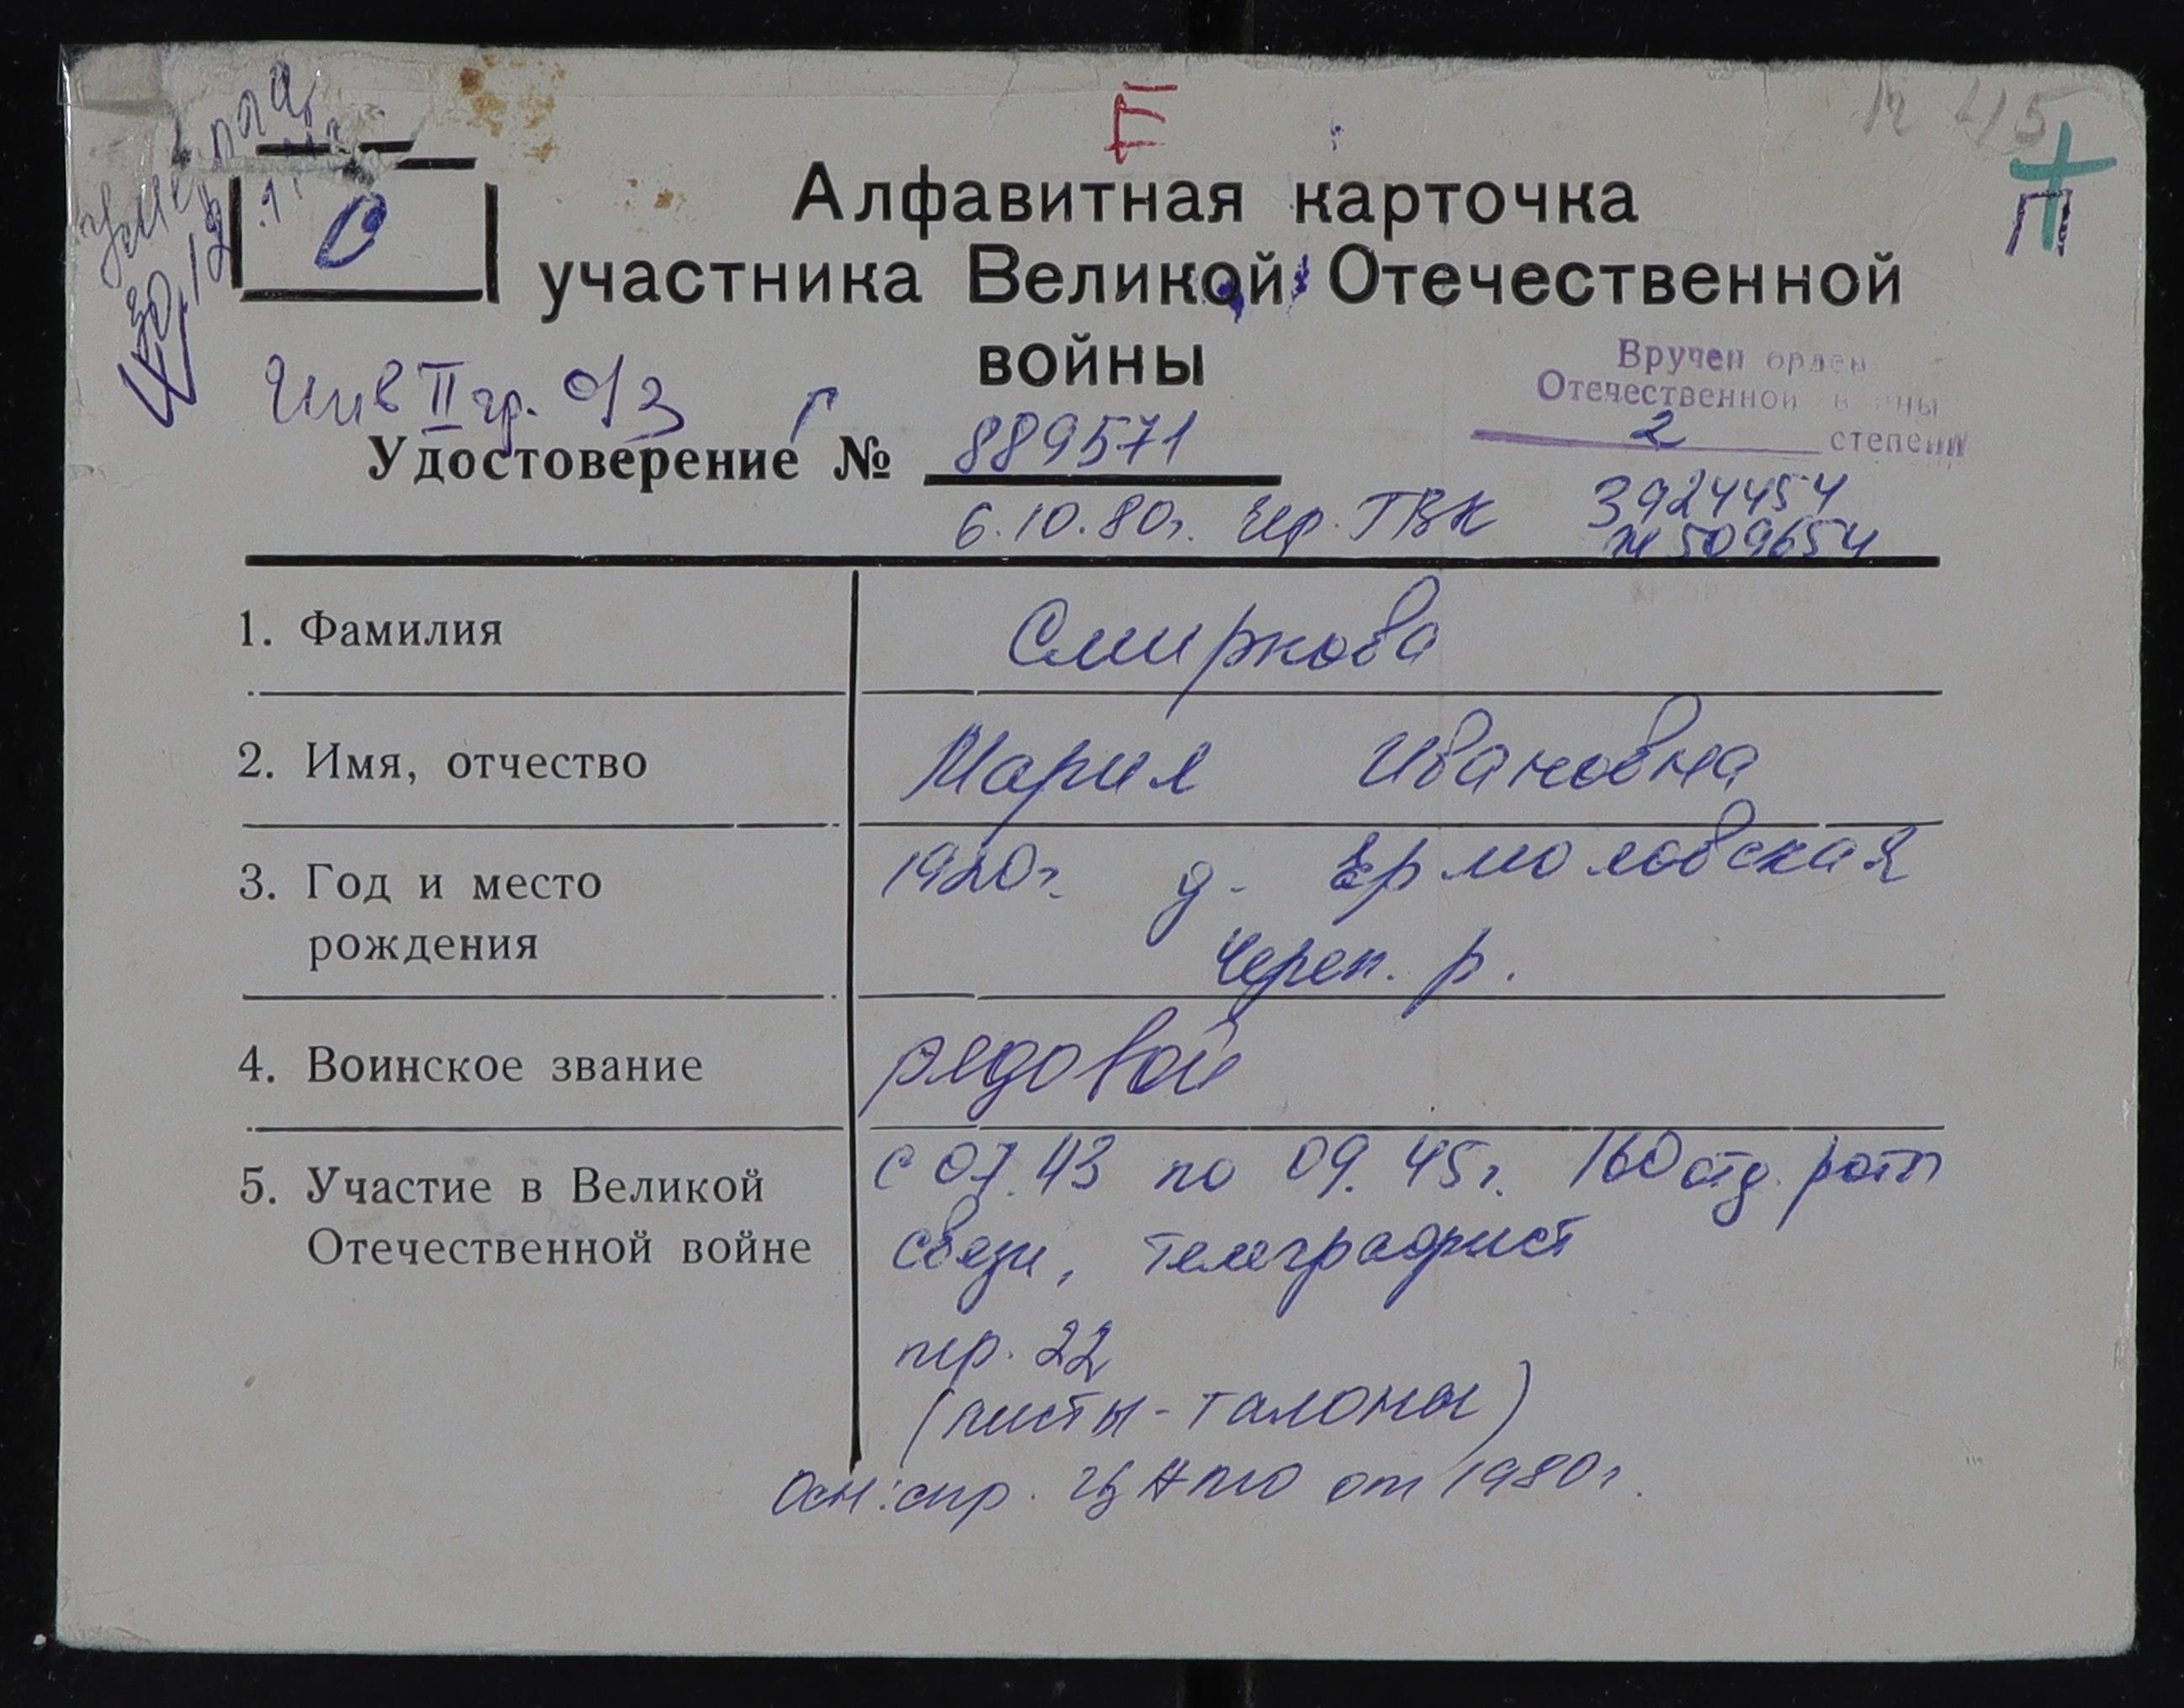 Е
п 415
умерла
30.12
П
О
Алфавитная карточка
участника Великой Отечественной
войны
Вручен орден
Отечественной войны
2 степени
Инв II гр. о/з
Удостоверение № 889571
6.10.80г. Чер. ГВК
3924454
№ 509654
1. Фамилия
Смирнова
2. Имя, отчество
Мария Ивановна
3. Год и место
рождения
1920г. д. Ермоловская
Череп. р.
4. Воинское звание
рядовой
5. Участие в Великой
Отечественной войне
с 07.43 по 09.45г. 160 отд. роты
связи, телеграфист
пер. 22
(листы-талоны)
Осн: спр. ЦАМО от 1980г.